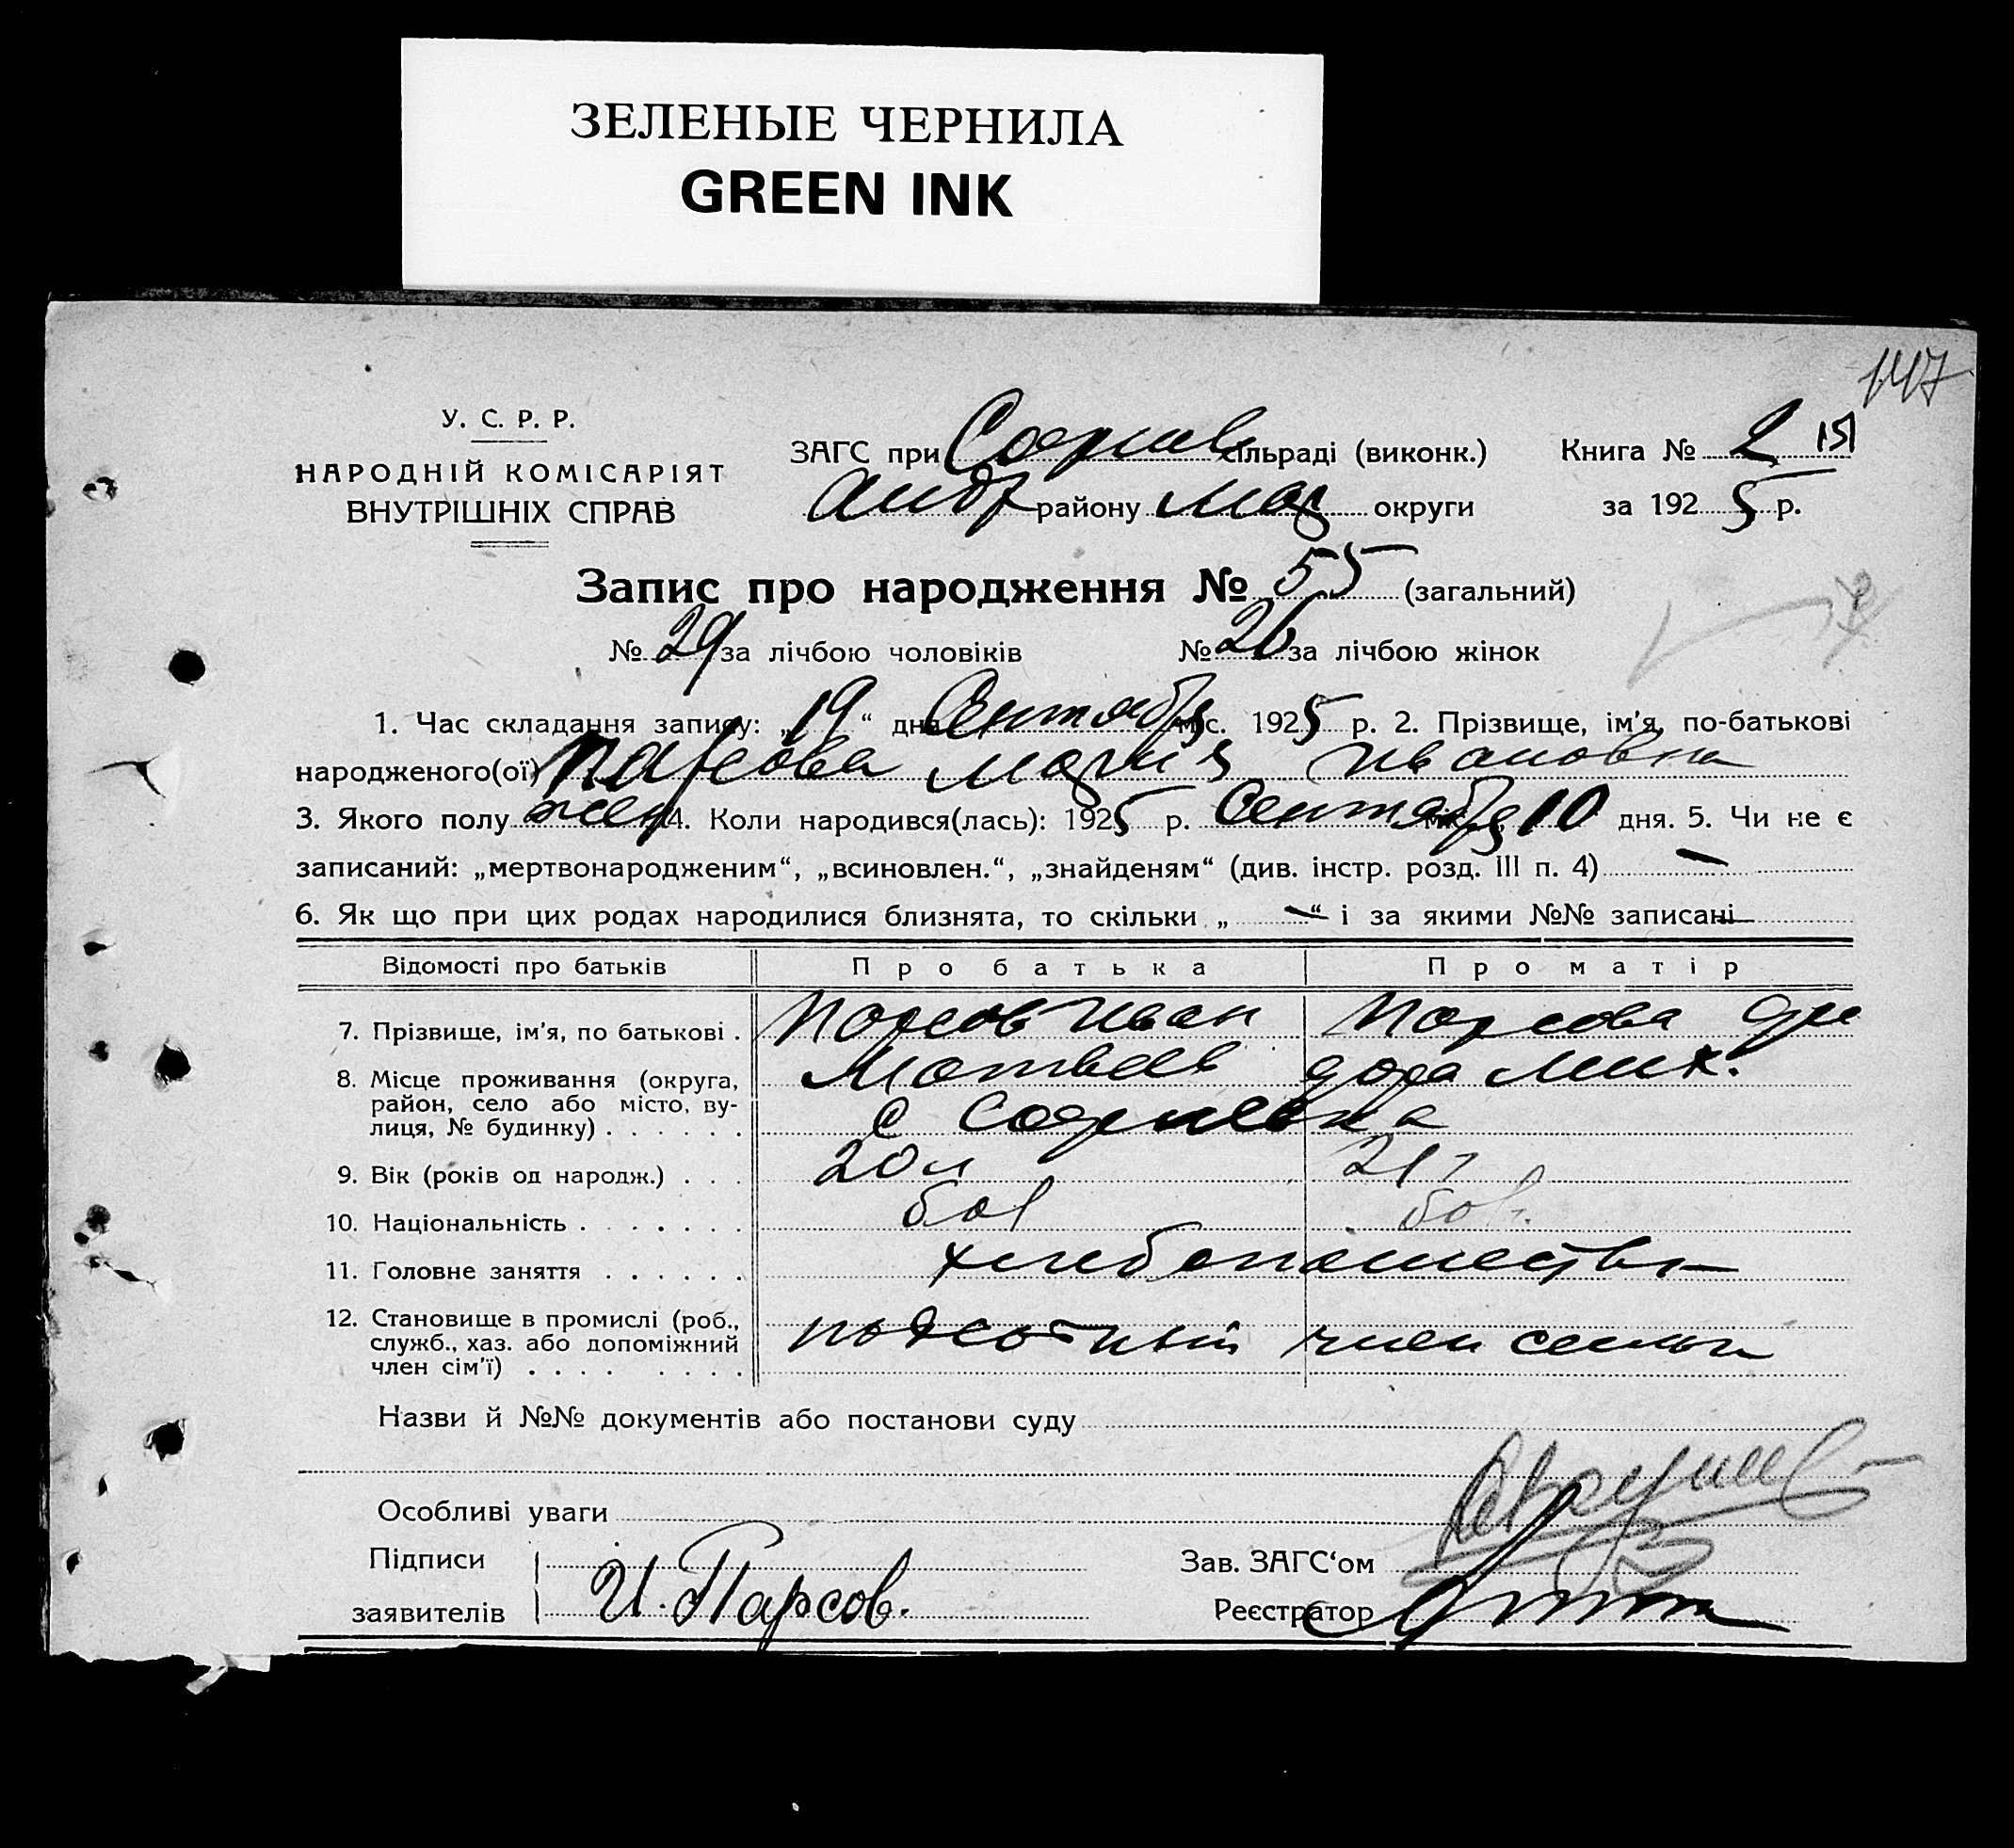 ЗЕЛЕНЫЕ ЧЕРНИЛА
GREEN INK
147
У. С. Р. Р.
НАРОДНІЙ КОМІСАРІЯТ
ВНУТРІШНІХ СПРАВ
ЗАГС при Софиев сільраді (виконк.) Книга № 2 151
Андр району Мар округи за 1925 р.
Запис про народження № 55 (загальний)
№ 29 за лічбою чоловіків № 26 за лічбою жінок
1. Час складання запису: „19“ дня Сентября міс. 1925 р. 2. Прізвище, ім'я, по-батькові
народженого(ої) Парсова Мария Ивановна
3. Якого полу жен 4. Коли народився(лась): 1925 р. Сентября міс. 10 дня. 5. Чи не є
записаний: „мертвонародженим“, „всиновлен.“, „знайденям“ (див. інстр. розд. III п. 4) —
6. Як що при цих родах народилися близнята, то скільки „ — “ і за якими №№ записані —
Відомості про батьків Про батька Про матір
7. Прізвище, ім'я, по батькові . Парсов Иван Парсова
Матвеев дора Мих.
8. Місце проживання (округа,
район, село або місто, ву-
лиця, № будинку) . . . . . . с Софиевка
9. Вік (років од народж.) . . . 20 л 21 г
10. Національність . . . . . . . бол бол.
11. Головне заняття . . . . . . хлебопашество
12. Становище в промислі (роб.,
служб., хаз. або допоміжний
член сім'ї) . . . . . . . . член семьи
Назви й №№ документів або постанови суду
Особливі уваги
Підписи
заявителів И. Парсов.
Зав. ЗАГС‘ом
Реєстратор